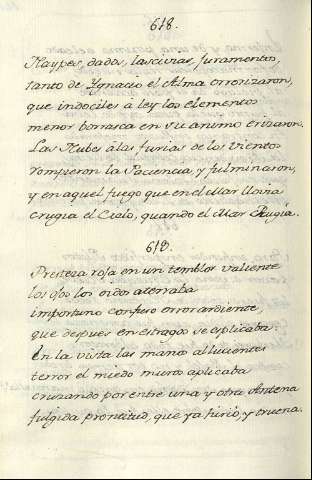 618.
Naypes, dados, lascivias, juramentos,
tanto de Ygnacio el Alma orrorizaron,
que indociles á ley los elementos
menor borrasca en su animo erizaron.
Las Nubes á las furias de los vientos
rompieron la Paciencia, y fulminaron,
y en aquel fuego que en el Mar llovia
crugia el Cielo, quando el Mar Rugia.
619.
Presteza roja en un temblor valiente
los ojos los oidos aterraba
importuno confuso error ardiente,
que despues en estragos se aplicaba.
En la vista las manos
terror el miedo muros aplicaba
cruzando por entre una y otra Antena
fulgida prontitud, que ya hirió, y truena.